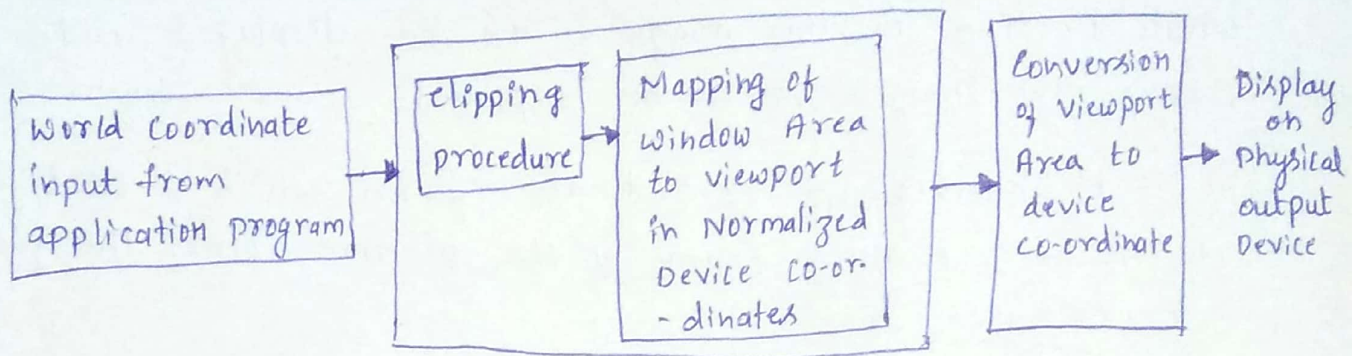 World Coordinate
input from
application program
clipping
procedure
Mapping of
window Area
to viewport
in Normalized
Device co-or-
-dinates
Conversion
of viewport
Area to
device
co-ordinate
Display
on
Physical
output
Device